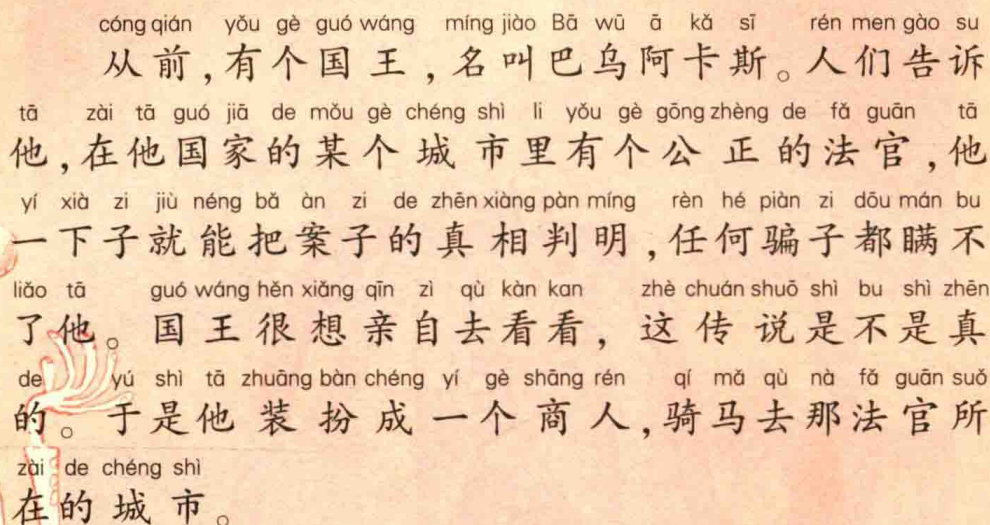 cóng qián yǒu gè guó wáng míng jiào Bā wū ā kǎ sī rén men gào su
从前,有个国王,名叫巴乌阿卡斯。人们告诉
tā zài tā guó jiā de mǒu gè chéng shì li yǒu gè gōng zhèng de fǎ guān tā
他,在他国家的某个城市里有个公正的法官,他
yí xià zi jiù néng bǎ àn zi de zhēn xiàng pàn míng rèn hé piàn zi dōu mán bu
一下子就能把案子的真相判明,任何骗子都瞒不
liǎo tā guó wáng hěn xiǎng qīn zì qù kàn kan zhè chuán shuō shì bu shì zhēn
了他。国王很想亲自去看看,这传说是不是真
de yú shì tā zhuāng bàn chéng yí gè shāng rén qí mǎ qù nà fǎ guān suǒ
的。于是他装扮成一个商人,骑马去那法官所
zài de chéng shì
在的城市。